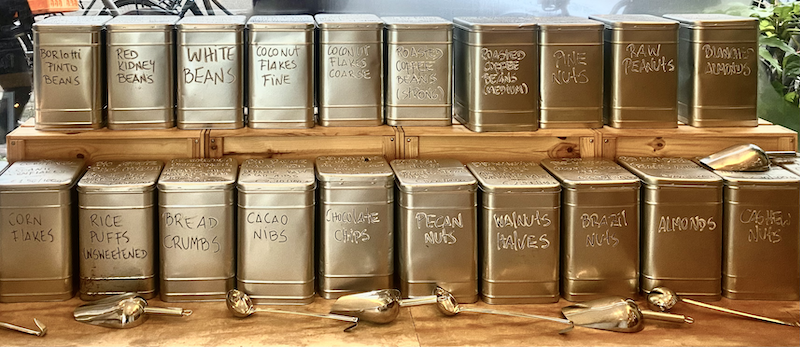 BORLOTTI
PINTO
BEANS
RED
KIDNEY
BEANS
WHITE
BEANS
COCONUT
FLAKES
FINE
COCONUT
FLAKES
COARSE
ROASTED
COFFEE
BEANS
(STRONG)
ROASTED
COFFEE
BEANS
(MEDIUM)
PINE
NUTS
RAW
PEANUTS
BLANCHED
ALMONDS
CORN
FLAKES
RICE
PUFFS
UNSWEETENED
BREAD
CRUMBS
CACAO
NIBS
CHOCOLATE
CHIPS
PECAN
NUTS
WALNUTS
HALVES
BRAZIL
NUTS
ALMONDS
CASHEW
NUTS